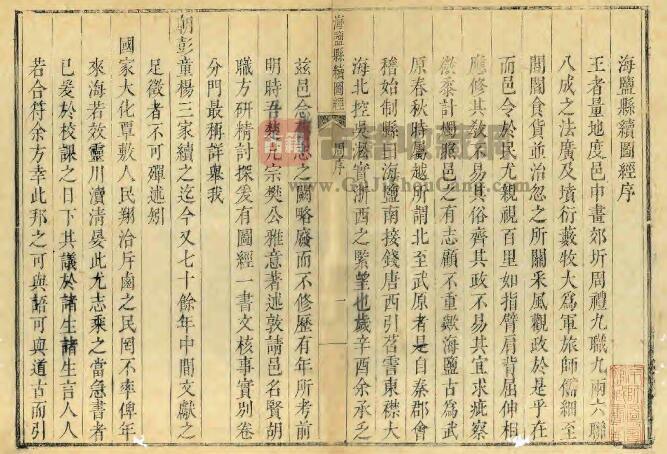 海鹽縣續圖經序
王者量地度邑申畫郊圻周禮九職九兩六聯
八成之法廣及墳衍藪牧大為軍旅師儒細至
閭閻食貨並治忽之所關采風觀政於是乎在
而邑令於民尤親視百里如指臂肩背屈伸相
應修其教不易其俗齊其政不易其宜求疵察
黍計燭照邑之有志顧不重歟海鹽古為武
原春秋時屬越所謂北至武原者是自秦郡會
稽始制縣曰海鹽南接錢唐西引苕霅東襟大
海北控吳淞實浙西之緊望也歲辛酉余承乏
茲邑念舊志之闕略廢而不修歷有年所考前
明時吾楚九宗樊公雅意著述敦請邑名賢胡
職方研精討探爰有圖經一書文核事實別卷
分門最稱詳舉我
朝彭童楊三家續之迄今又七十餘年中間文獻之
足徵者不可殫述矧
國家大化覃敷人民翔洽斥鹵之民罔不率俾年
來海若效靈川瀆清晏此尤志乘之當急書者
已爰於校課之日下其議於諸生諸生言人人
若合符余方幸此邦之可與語可與道古而引
海鹽縣續圖經
周序
一
古籍